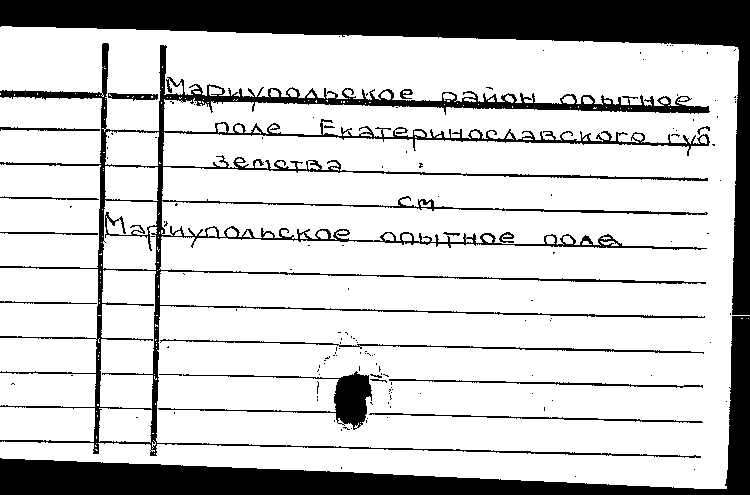 Мариупольское район опытное
поле Екатеринославского губ.
земства :
см
Мариупольское опытное поле